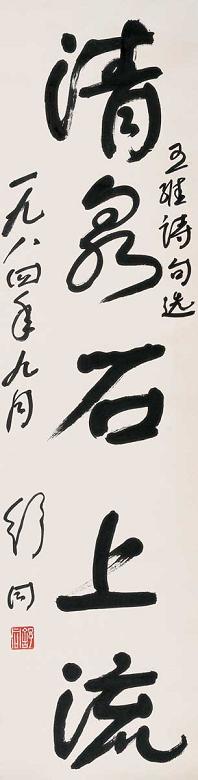 清泉石上流
王维诗句选
一九八四年九月
舒同